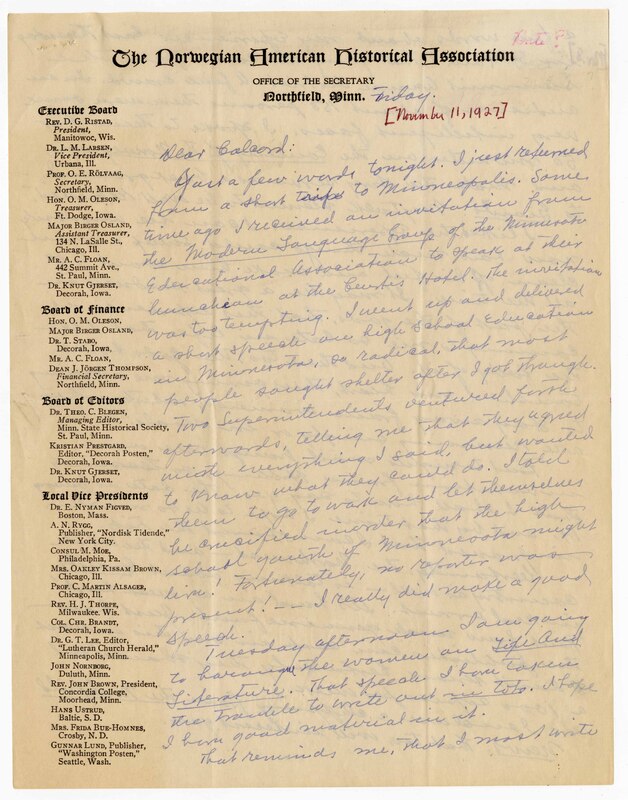 The Norwegian American Historical Association
OFFICE OF THE SECRETARY
Northfield, Minn. Friday.
[November 11, 1927]
Executive Board
REV. D. G. RISTAD,
President,
Manitowoc, Wis.
DR. L. M. LARSEN,
Vice President,
Urbana, Ill.
PROF. O. E. RÖLVAAG,
Secretary,
Northfield, Minn.
HON. O. M. OLESON,
Treasurer,
Ft. Dodge, Iowa.
MAJOR BIRGER OSLAND,
Assistant Treasurer,
134 N. LaSalle St.,
Chicago, Ill.
MR. A. C. FLOAN,
442 Summit Ave.,
St. Paul, Minn.
DR. KNUT GJERSET,
Decorah, Iowa.
Board of Finance
HON. O. M. OLESON,
MAJOR BIRGER OSLAND,
DR. T. STABO,
Decorah, Iowa,
MR. A. C. FLOAN,
DEAN J. JÖRGEN THOMPSON,
Financial Secretary,
Northfield, Minn.
Board of Editors
DR. THEO. C. BLEGEN,
Managing Editor,
Minn. State Historical Society,
St. Paul, Minn.
KRISTIAN PRESTGARD,
Editor, "Decorah Posten,"
Decorah, Iowa.
DR. KNUT GJERSET,
Decorah, Iowa.
Local Vice Presidents
DR. E. NYMAN FIGVED,
Boston, Mass.
A. N. RYGG,
Publisher, "Nordisk Tidende,"
New York City.
CONSUL M. MOE,
Philadelphia, Pa.
MRS. OAKLEY KISSAM BROWN,
Chicago, Ill.
PROF. C. MARTIN ALSAGER,
Chicago, Ill.
REV. H. J. THORPE,
Milwaukee. Wis.
COL. CHR. BRANDT,
Decorah, Iowa.
DR. G. T. LEE, Editor,
"Lutheran Church Herald,"
Minneapolis, Minn.
JOHN NORNBORG,
Duluth, Minn.
REV. JOHN BROWN, President,
Concordia College,
Moorhead, Minn.
HANS USTRUD,
Baltic, S. D.
MRS. FRIDA BUE-HOMNES,
Crosby, N. D.
GUNNAR LUND, Publisher,
"Washington Posten,"
Seattle, Wash.
Dear Colcord:
Just a few words tonight. I just returned
from a short trip to Minneapolis. Some
time ago I received an invitation from
the Modern Language Group of the Minnesota
Educational Association to speak at their
luncheon at the Curtis Hotel. The invitation
was too tempting. I went up and delivered
a short speech on high school Education
in Minnesota, so radical, that most
people sought shelter after I got through.
Two Superintendents ventured forth
afterwords, telling me that they agreed
with everything I said, but wanted
to know what they could do. I told
them to go to work and let themselves
be crucified in order that the high
school youth of Minnesota might
live! Fortunately, no reporter was
present! — I really did make a good
speech.
Tuesday afternoon I am going
to harangue the women on Life And
Literature. That speech I have taken
the trouble to write out in toto. I hope
I have good material in it.
That reminds me, that I must write